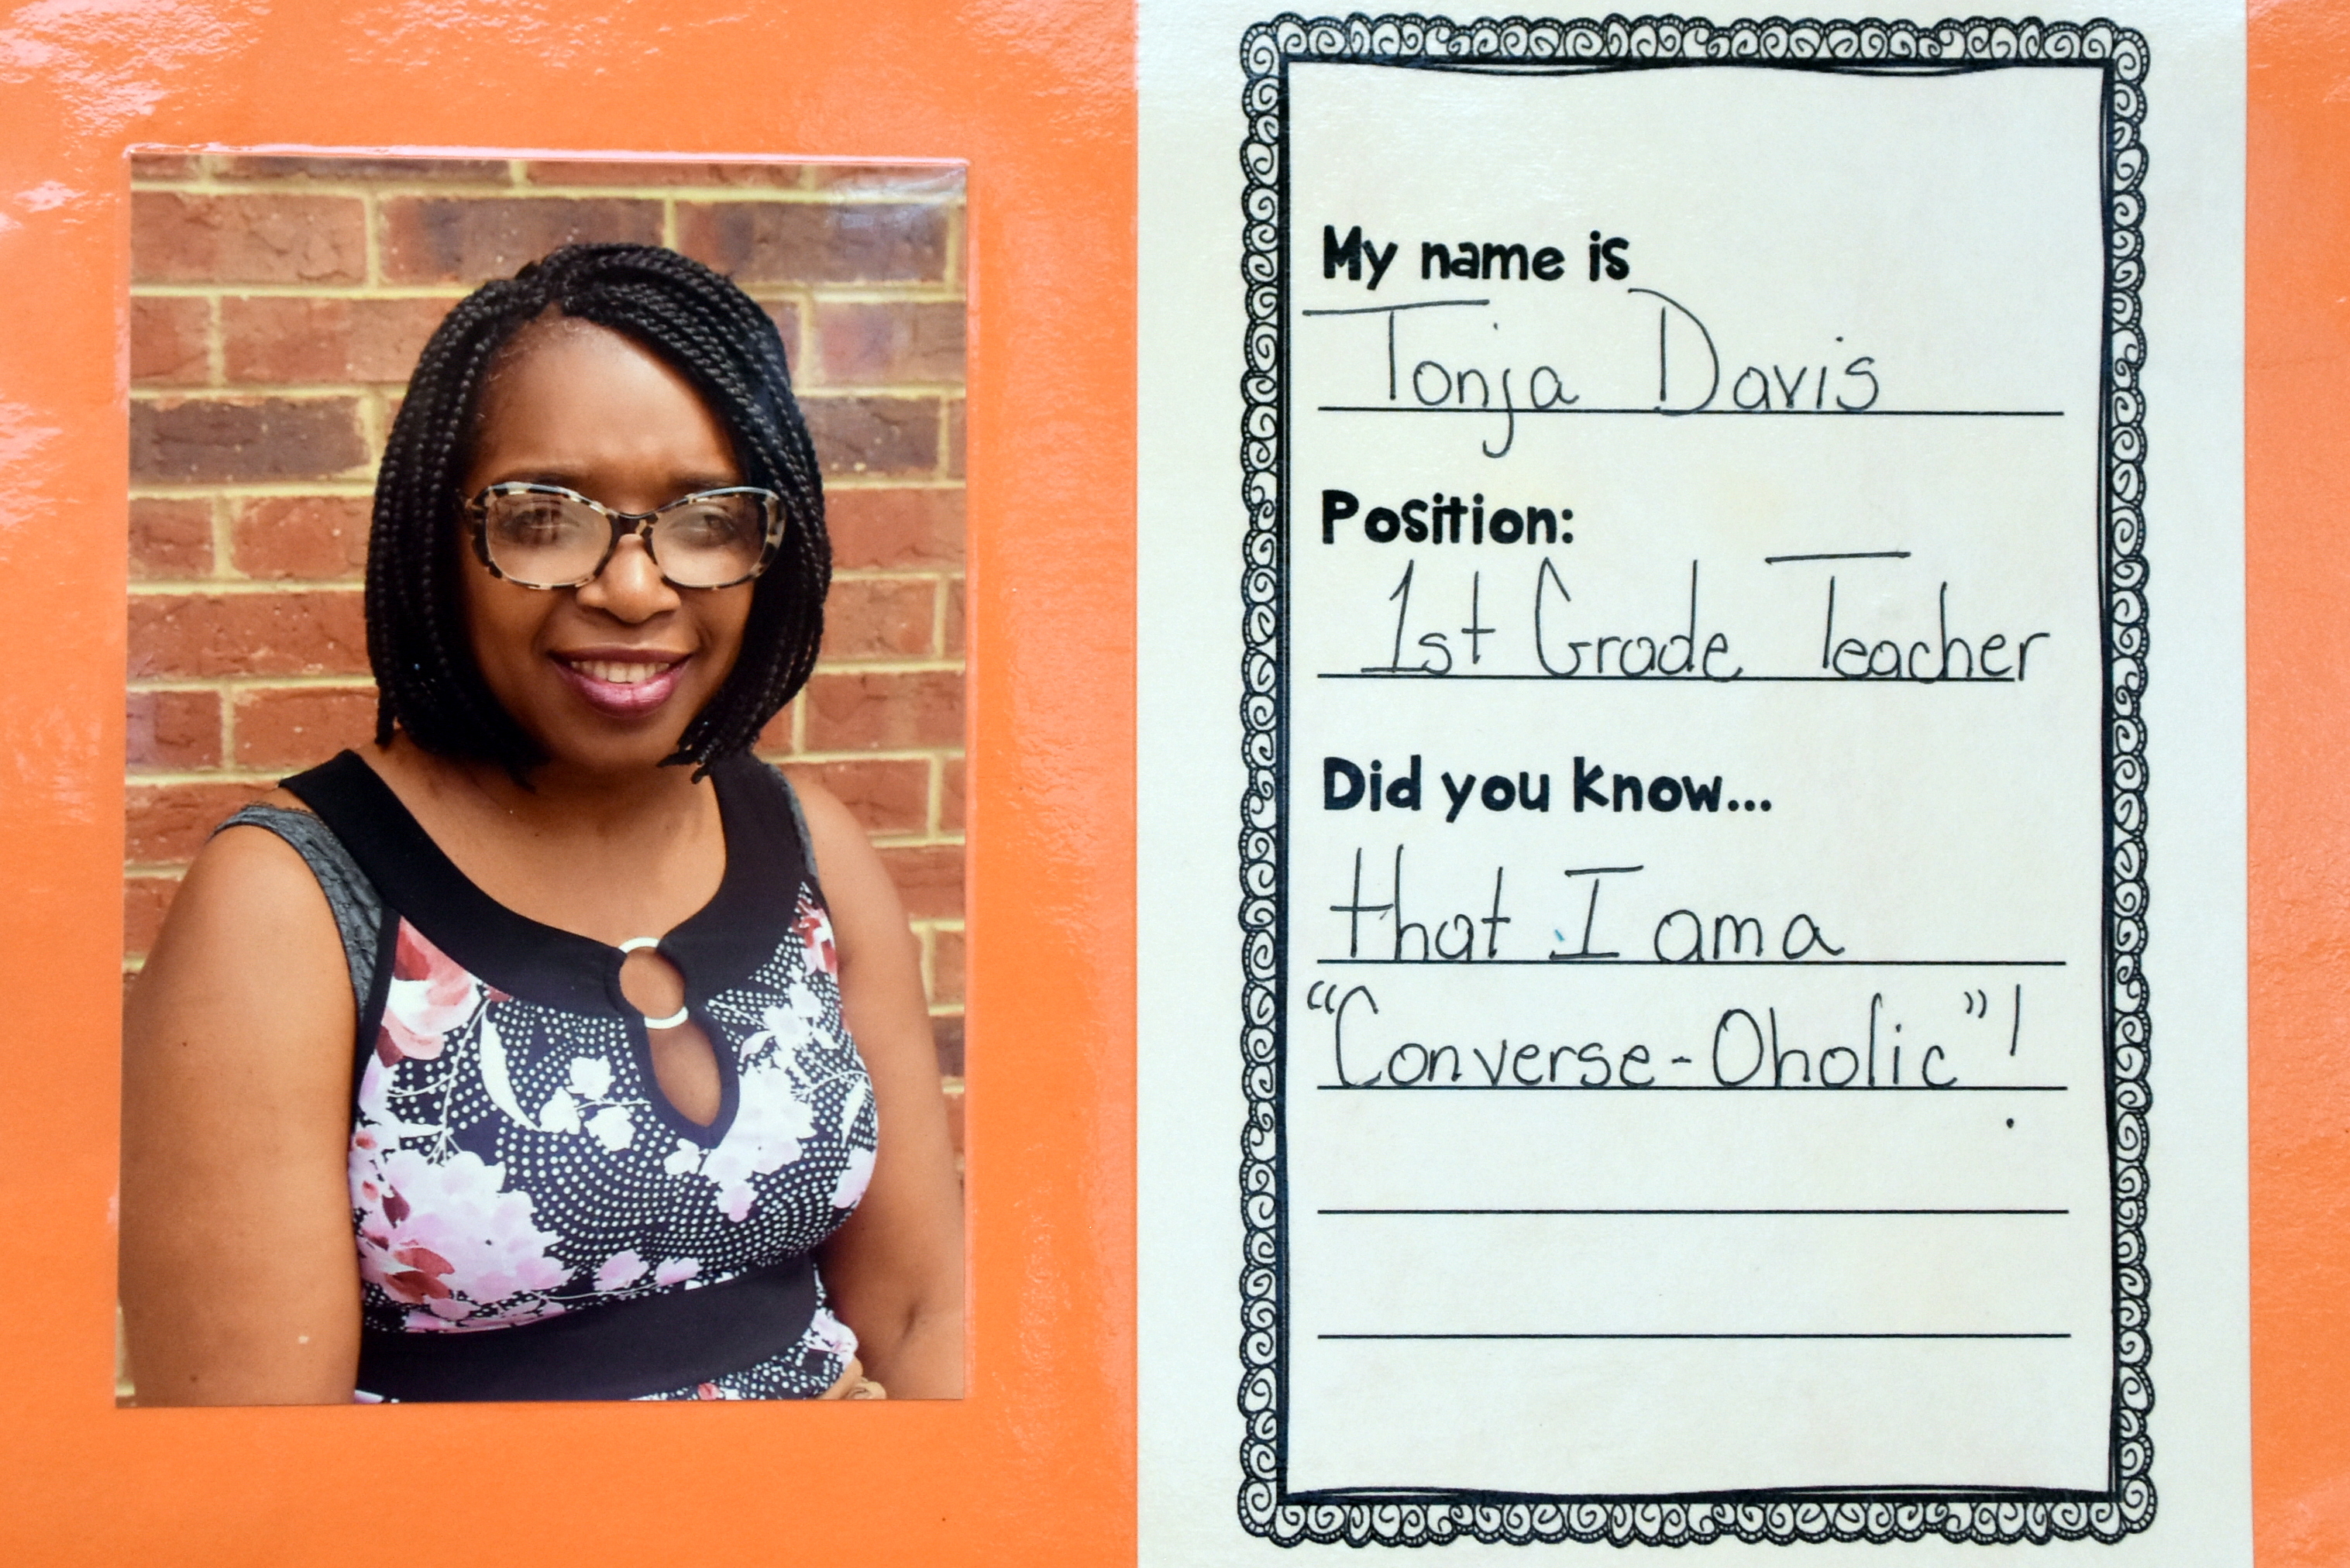 My name is
Tonja Davis
Position:
1st Grade Teacher
Did you know...
that I am a
“Converse-Oholic”!